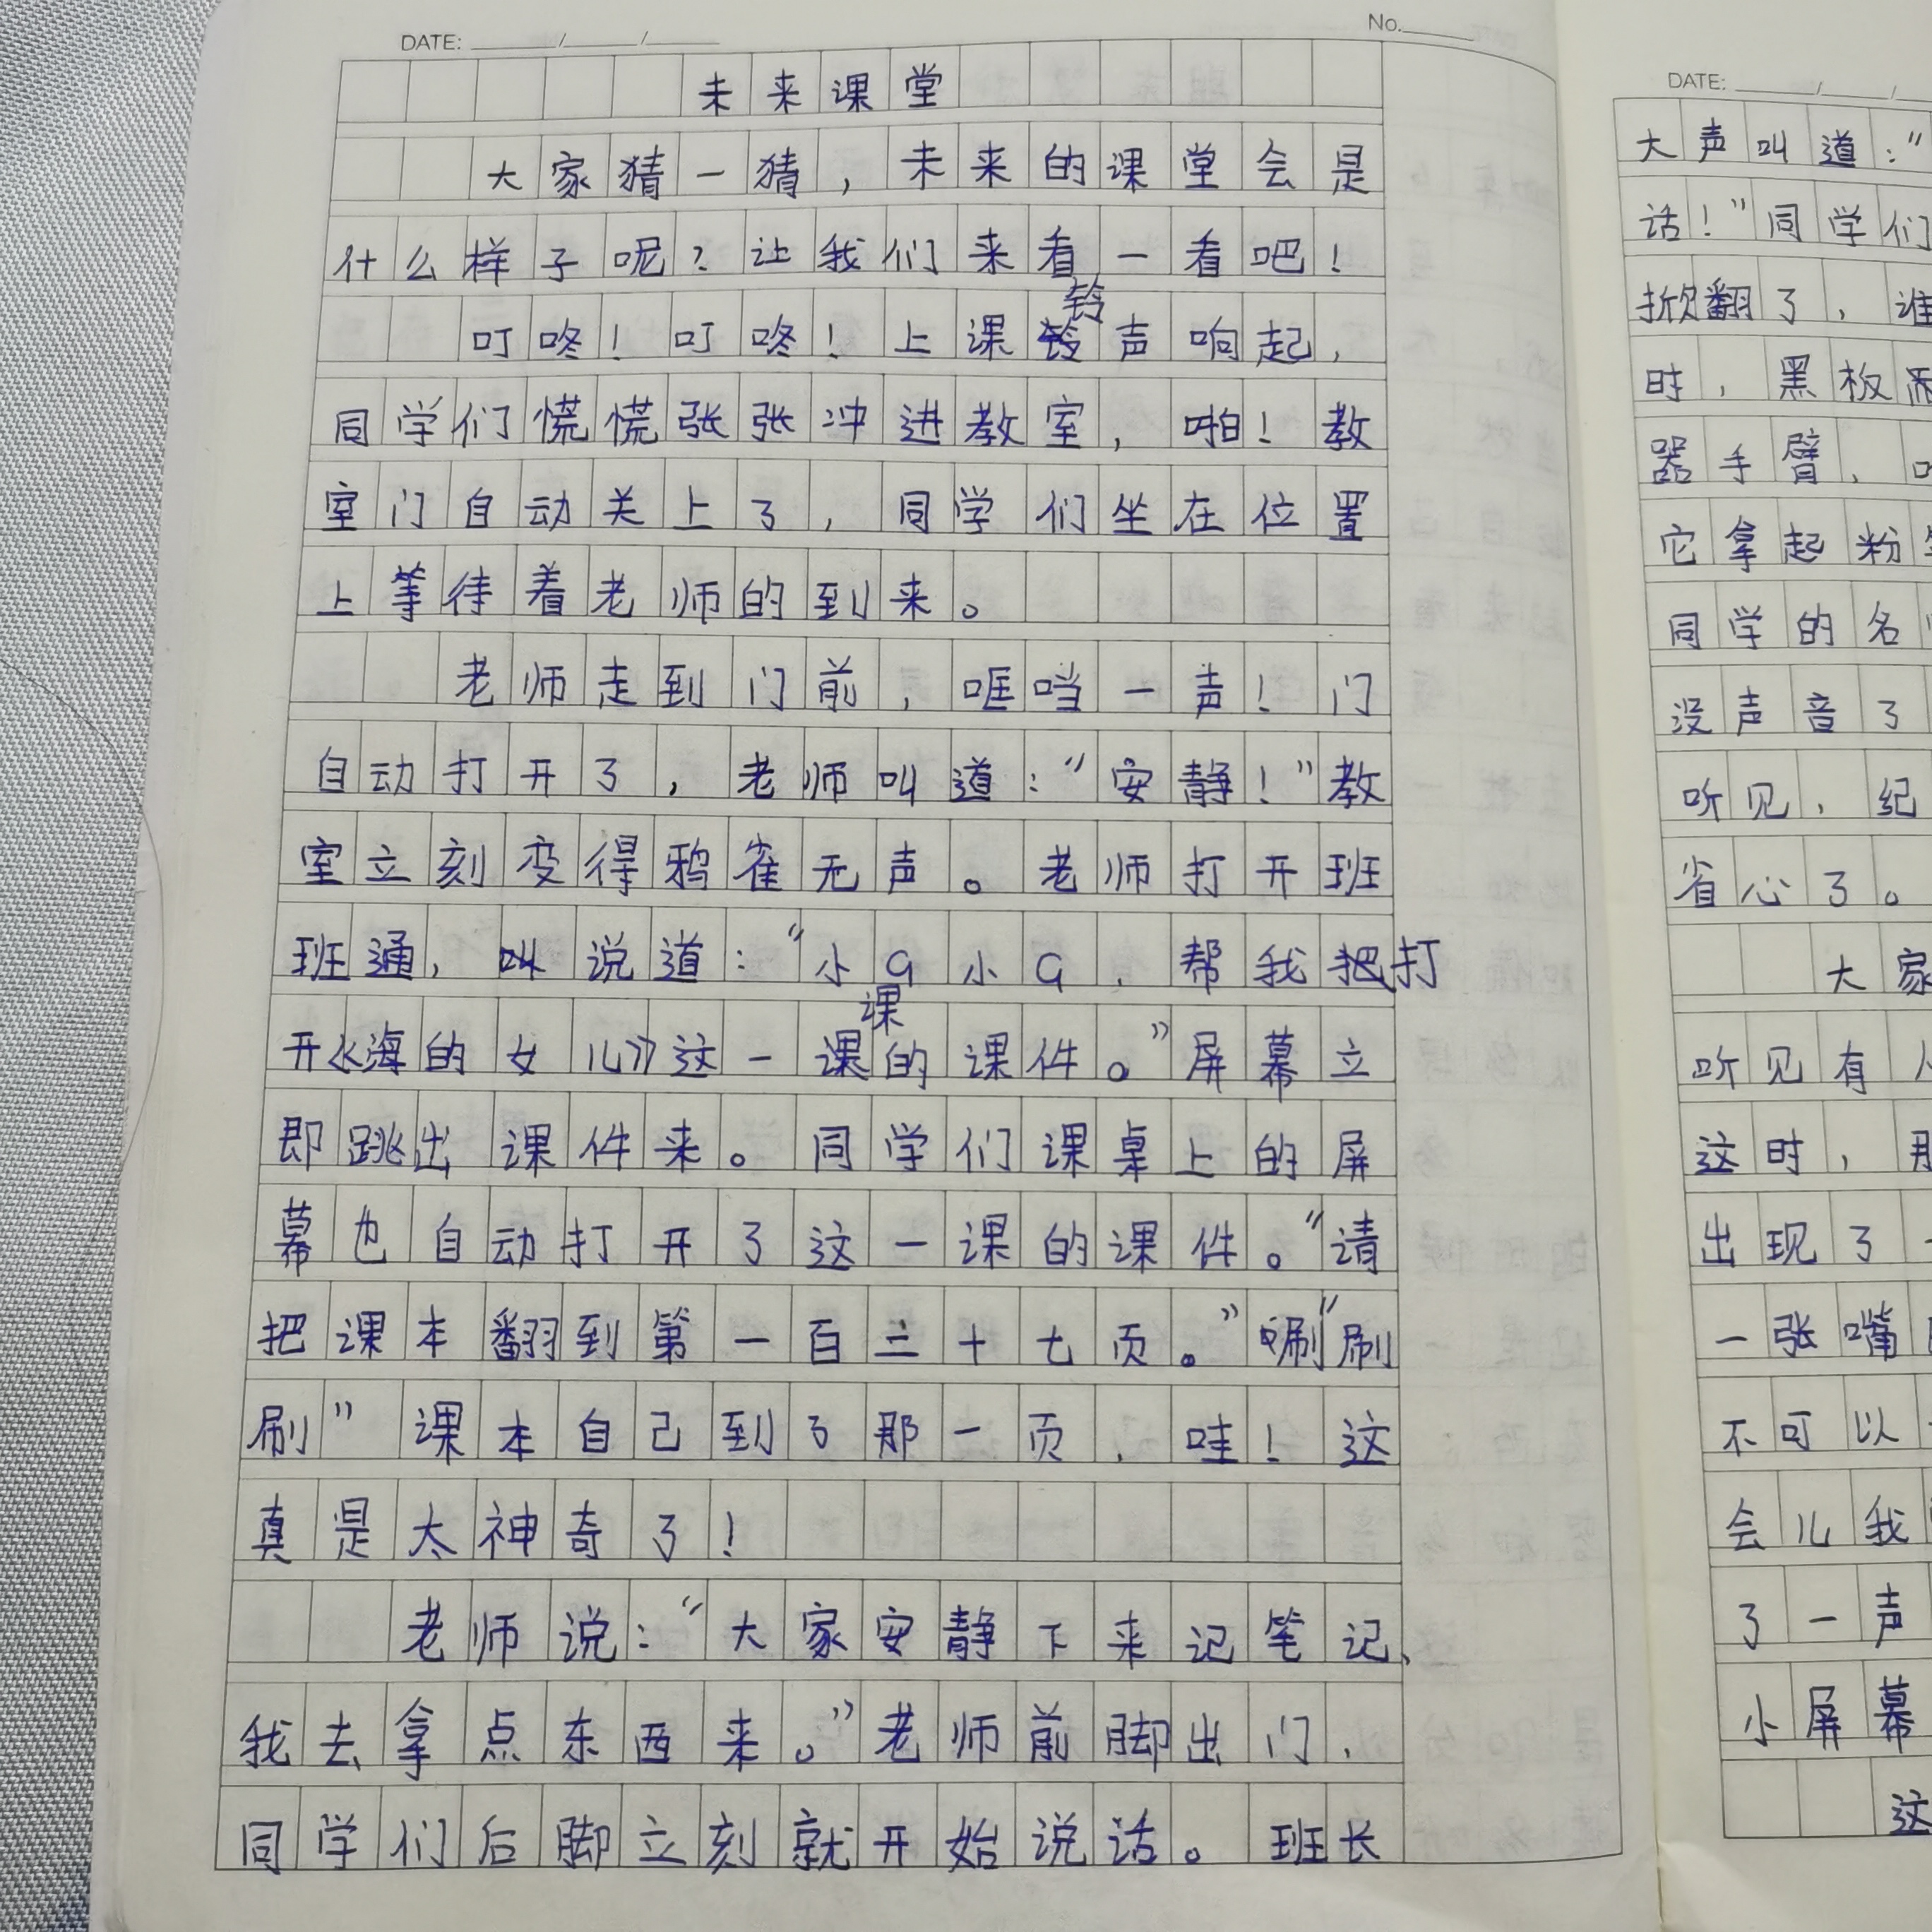 DATE: / /
No.
未来课堂
大家猜一猜，未来的课堂会是
什么样子呢？让我们来看一看吧！
叮咚！叮咚！上课铃声响起，
同学们慌慌张张冲进教室，啪！教
室门自动关上了，同学们坐在位置
上等待着老师的到来。
老师走到门前，哐当一声！门
自动打开了，老师叫道：“安静！”教
室立刻变得鸦雀无声。老师打开班
班通，叫说道：“小G小G，帮我把打
开《海的女儿》这一课的课件。”屏幕立
即跳出课件来。同学们课桌上的屏
幕也自动打开了这一课的课件。“请
把课本翻到第一百三十七页。”唰“刷
刷”课本自己到了那一页，哇！这
真是太神奇了！
老师说：“大家安静下来记笔记、
我去拿点东西来。”老师前脚出门，
同学们后脚立刻就开始说话。班长
DATE: / /
大声叫道：“
话！”同学们
掀翻了，谁
时，黑板
器手臂，
它拿起粉
同学的名
没声音了
听见，纪
省心了。
大家
听见有
这时，
出现了
一张嘴
不可以
会儿我
了一声
小屏幕
这